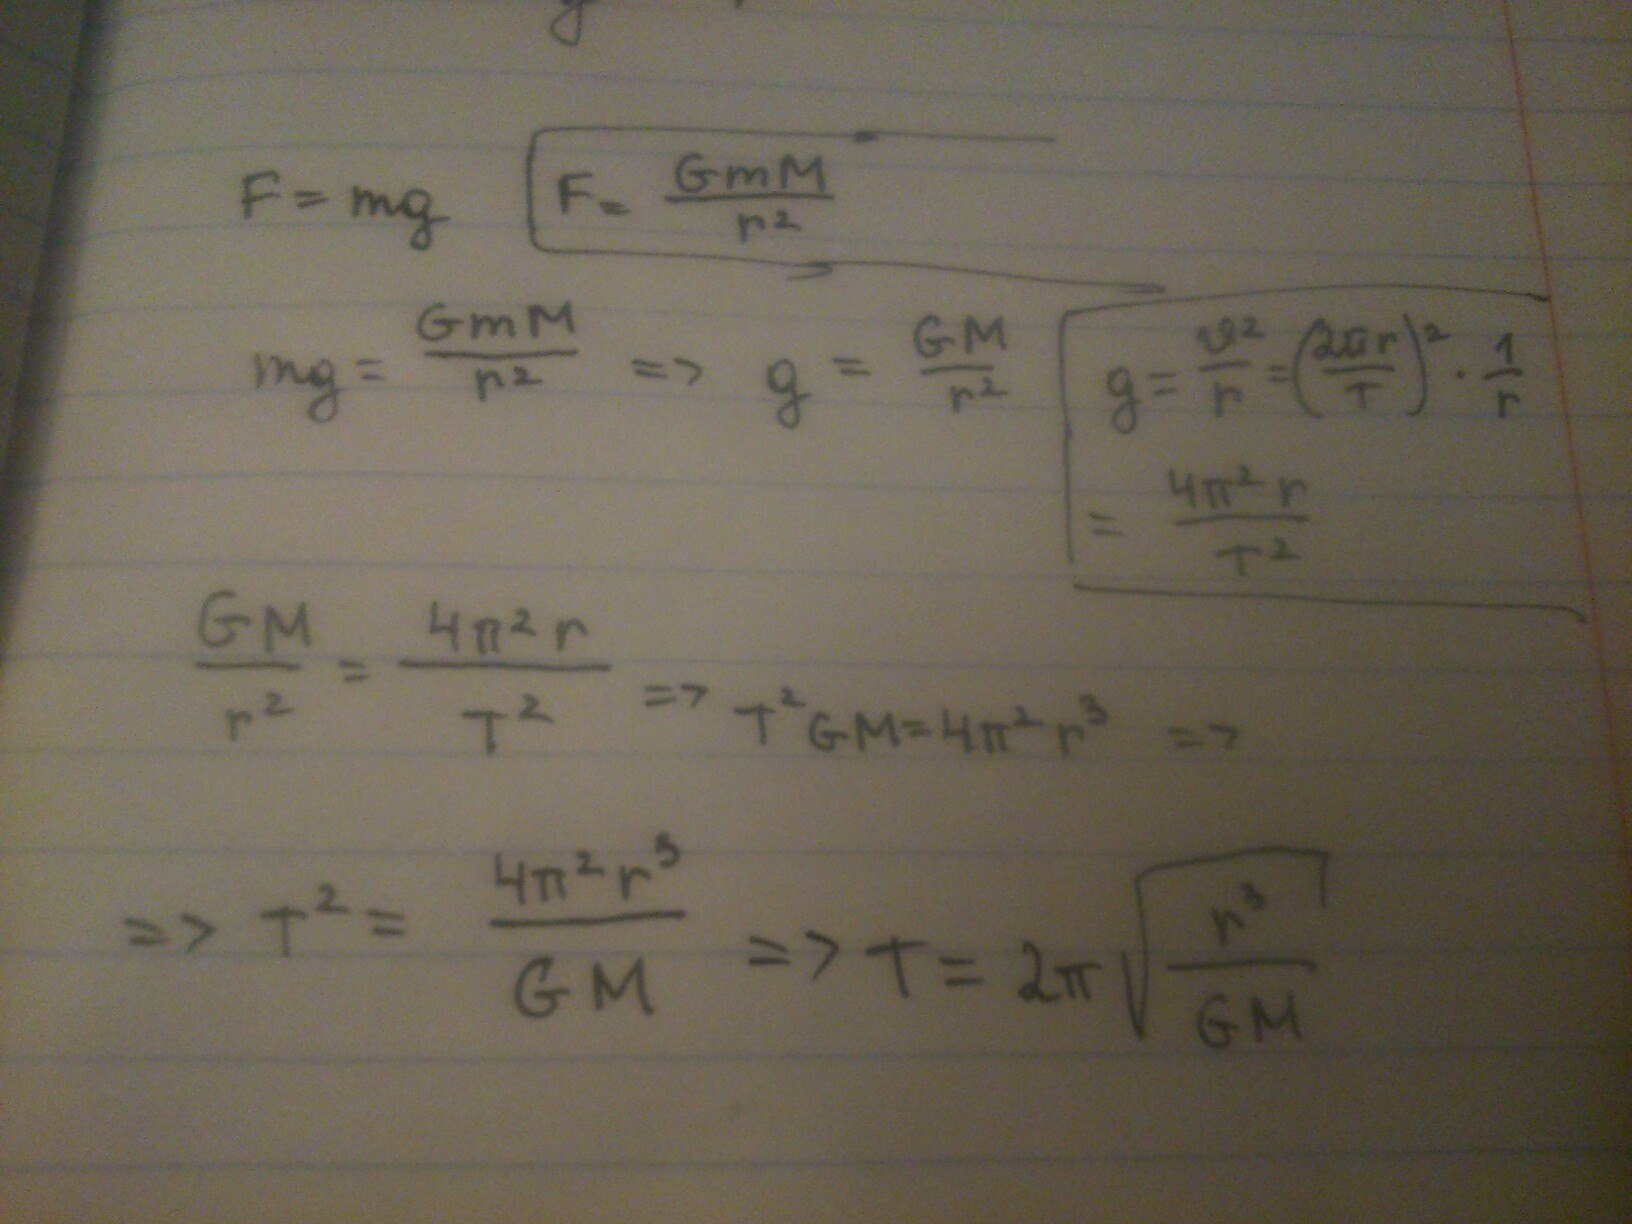 F = mg F = GmM/r²
mg = GmM/r² => g = GM/r² g = v²/r = (2πr/T)² · 1/r
= 4π²r/T²
GM/r² = 4π²r/T² => T²GM = 4π²r³ =>
=> T² = 4π²r³/GM => T = 2π√(r³/GM)